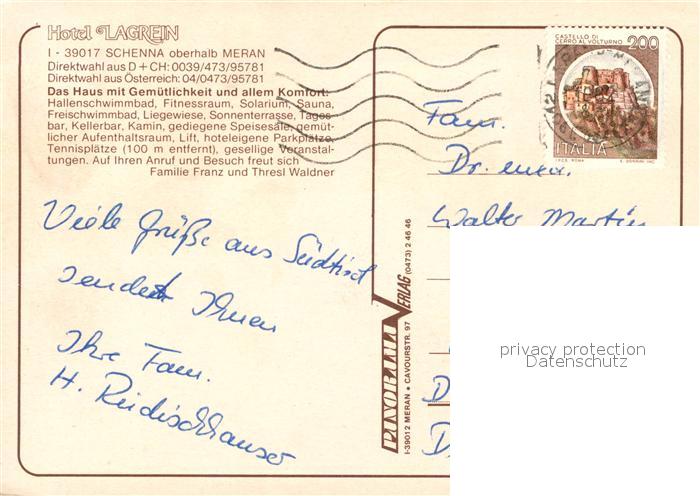 Hotel LAGREIN
I - 39017 SCHENNA oberhalb MERAN
Direktwahl aus D + CH: 0039/473/95781
Direktwahl aus Österreich: 04/0473/95781
Das Haus mit Gemütlichkeit und allem Komfort:
Hallenschwimmbad, Fitnessraum, Solarium, Sauna,
Freischwimmbad, Liegewiese, Sonnenterrasse, Tages
bar, Kellerbar, Kamin, gediegene Speisesäle, gemüt-
licher Aufenthaltsraum, Lift, hoteleigene Parkplätze,
Tennisplätze (100 m entfernt), gesellige Veranstal-
tungen. Auf Ihren Anruf und Besuch freut sich
Familie Franz und Thresl Waldner
Viele Grüße aus Südtirol
sendet Ihnen
Ihre Fam.
H.
PANORAMA VERLAG (0473) 2 46 46
I-39012 MERAN • CAVOURSTR. 97
CASTELLO DI
CERRO AL VOLTURNO
200
ITALIA
I.P.Z.S. ROMA
Fam.
Dr.
Walter Martin
D
D
privacy protection
Datenschutz